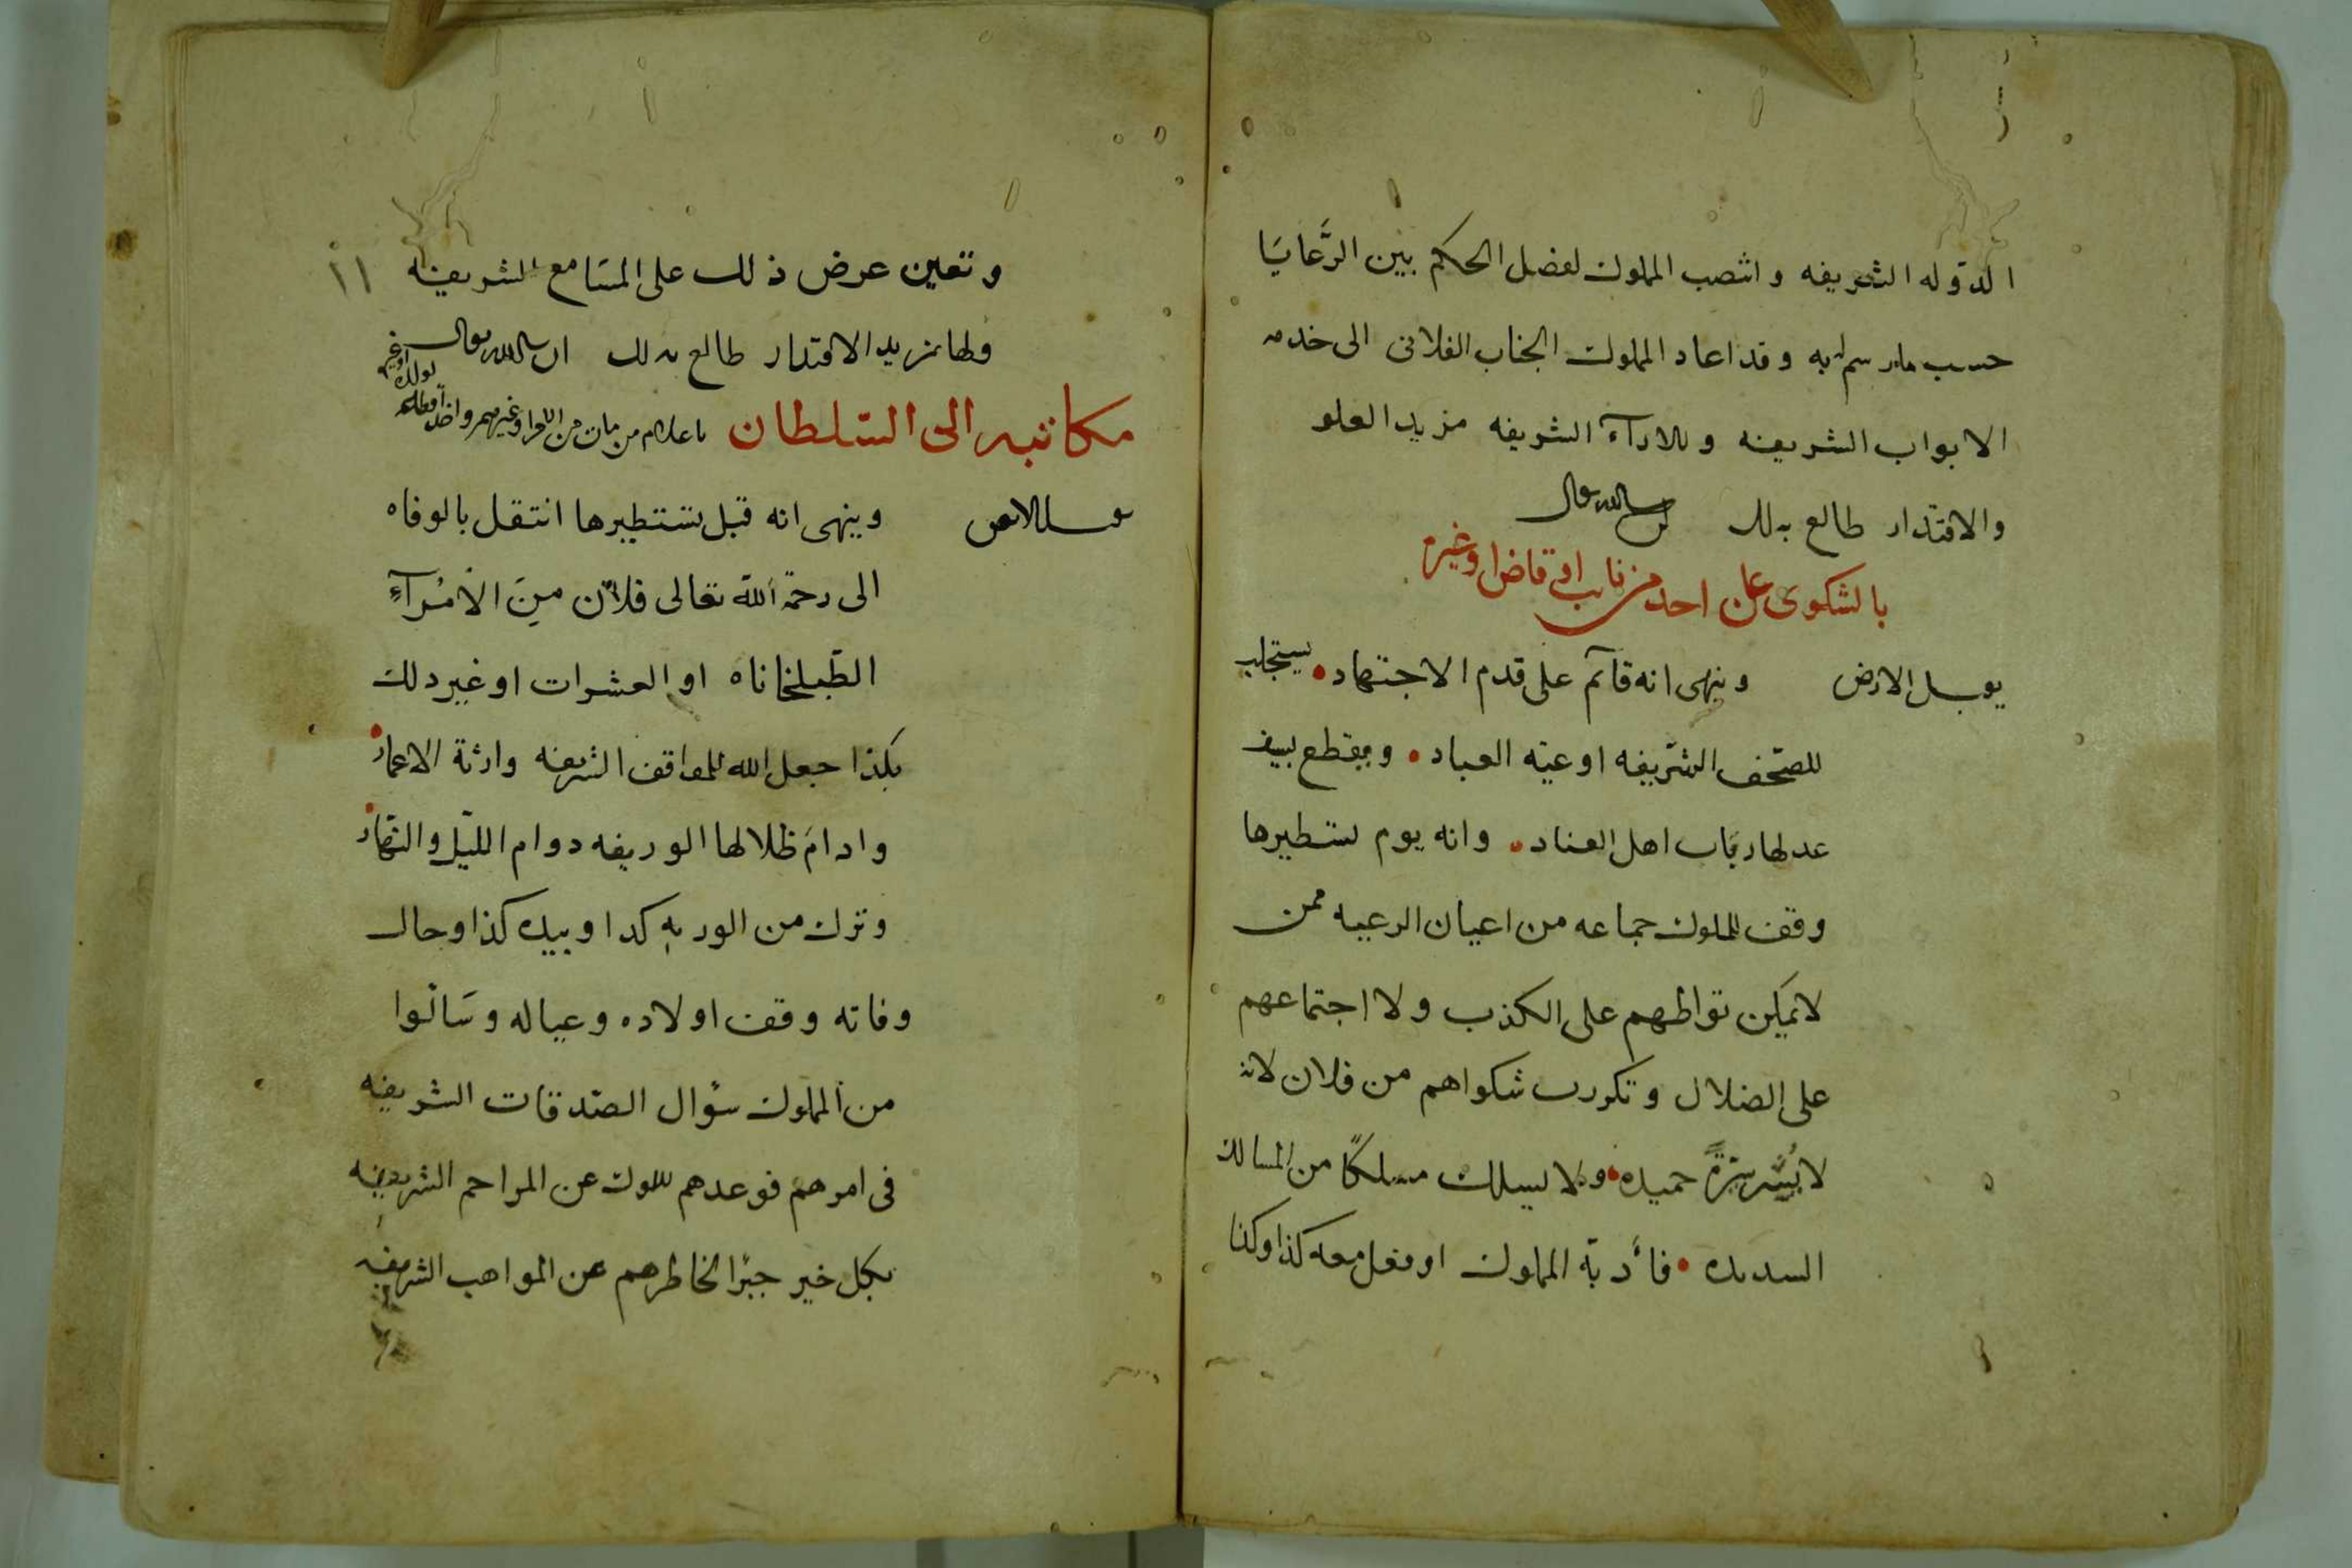 الدوله الشريفه وانتصب المملوك لفصل الحكم بين الرَّعايَا
حسب ما رسم له به وقد اعاد المملوك الجناب الفلانى الى خدمه
الابواب الشريفه وللارآء الشريفه مزيد العلو
والاقتدار طالع بذلك ان شا الله تعالى
بالشكوى على احد من نايب او قاض او غيره
يقبل الارض وينهى انه قآئم على قدم الاجتهاد • يستجلب
للصّحف الشّريفه اوعيّه العباد • ويقطع بسيف
عدلها رقاب اهل العناد • وانه يوم تسطيرها
وقف للملوك جماعه من اعيان الرعيه ممن
لا يمكن تواطيهم على الكذب ولا اجتماعهم
على الضلال وتكررت شكواهم من فلان لانه
لا يَسير سيرَةً حميده • ولا يسلك مسلكًا من المسالك
السديده • فأدبّه المملوك او فعل معه كذا وكذا
وتعين عرض ذلك على المسَامع الشريفه
١١
ولها مزيد الاقتدار طالع بذلك ان شا الله تعالى
مكاتبه الى السّلطان باعلام من مات من الامرا وغيرهم واخذ اقطاعه
لولده او غيره
يقبل الارض وينهى انه قبل تسطيرها انتقل بالوفاه
الى رحمة اللّه تعالى فلان مِنَ الاُمَرآءِ
الطّبلخاناه او العشرات او غير ذلك
بكذا جعل الله المواقف الشريفه وارثة الاعمار •
وادامَ ظلالها الوريفه دوام اللّيل والنّهار •
وترك من الورثه كذا وبيده كذا وحال
وفاته وقف اولاده وعياله وسَألوا
من المملوك سؤال الصّدقات الشريفه
فى امرهم فوعدهم المملوك عن المراحم الشريفه
بكل خير جبرًا لخاطرهم عن المواهب الشريفه